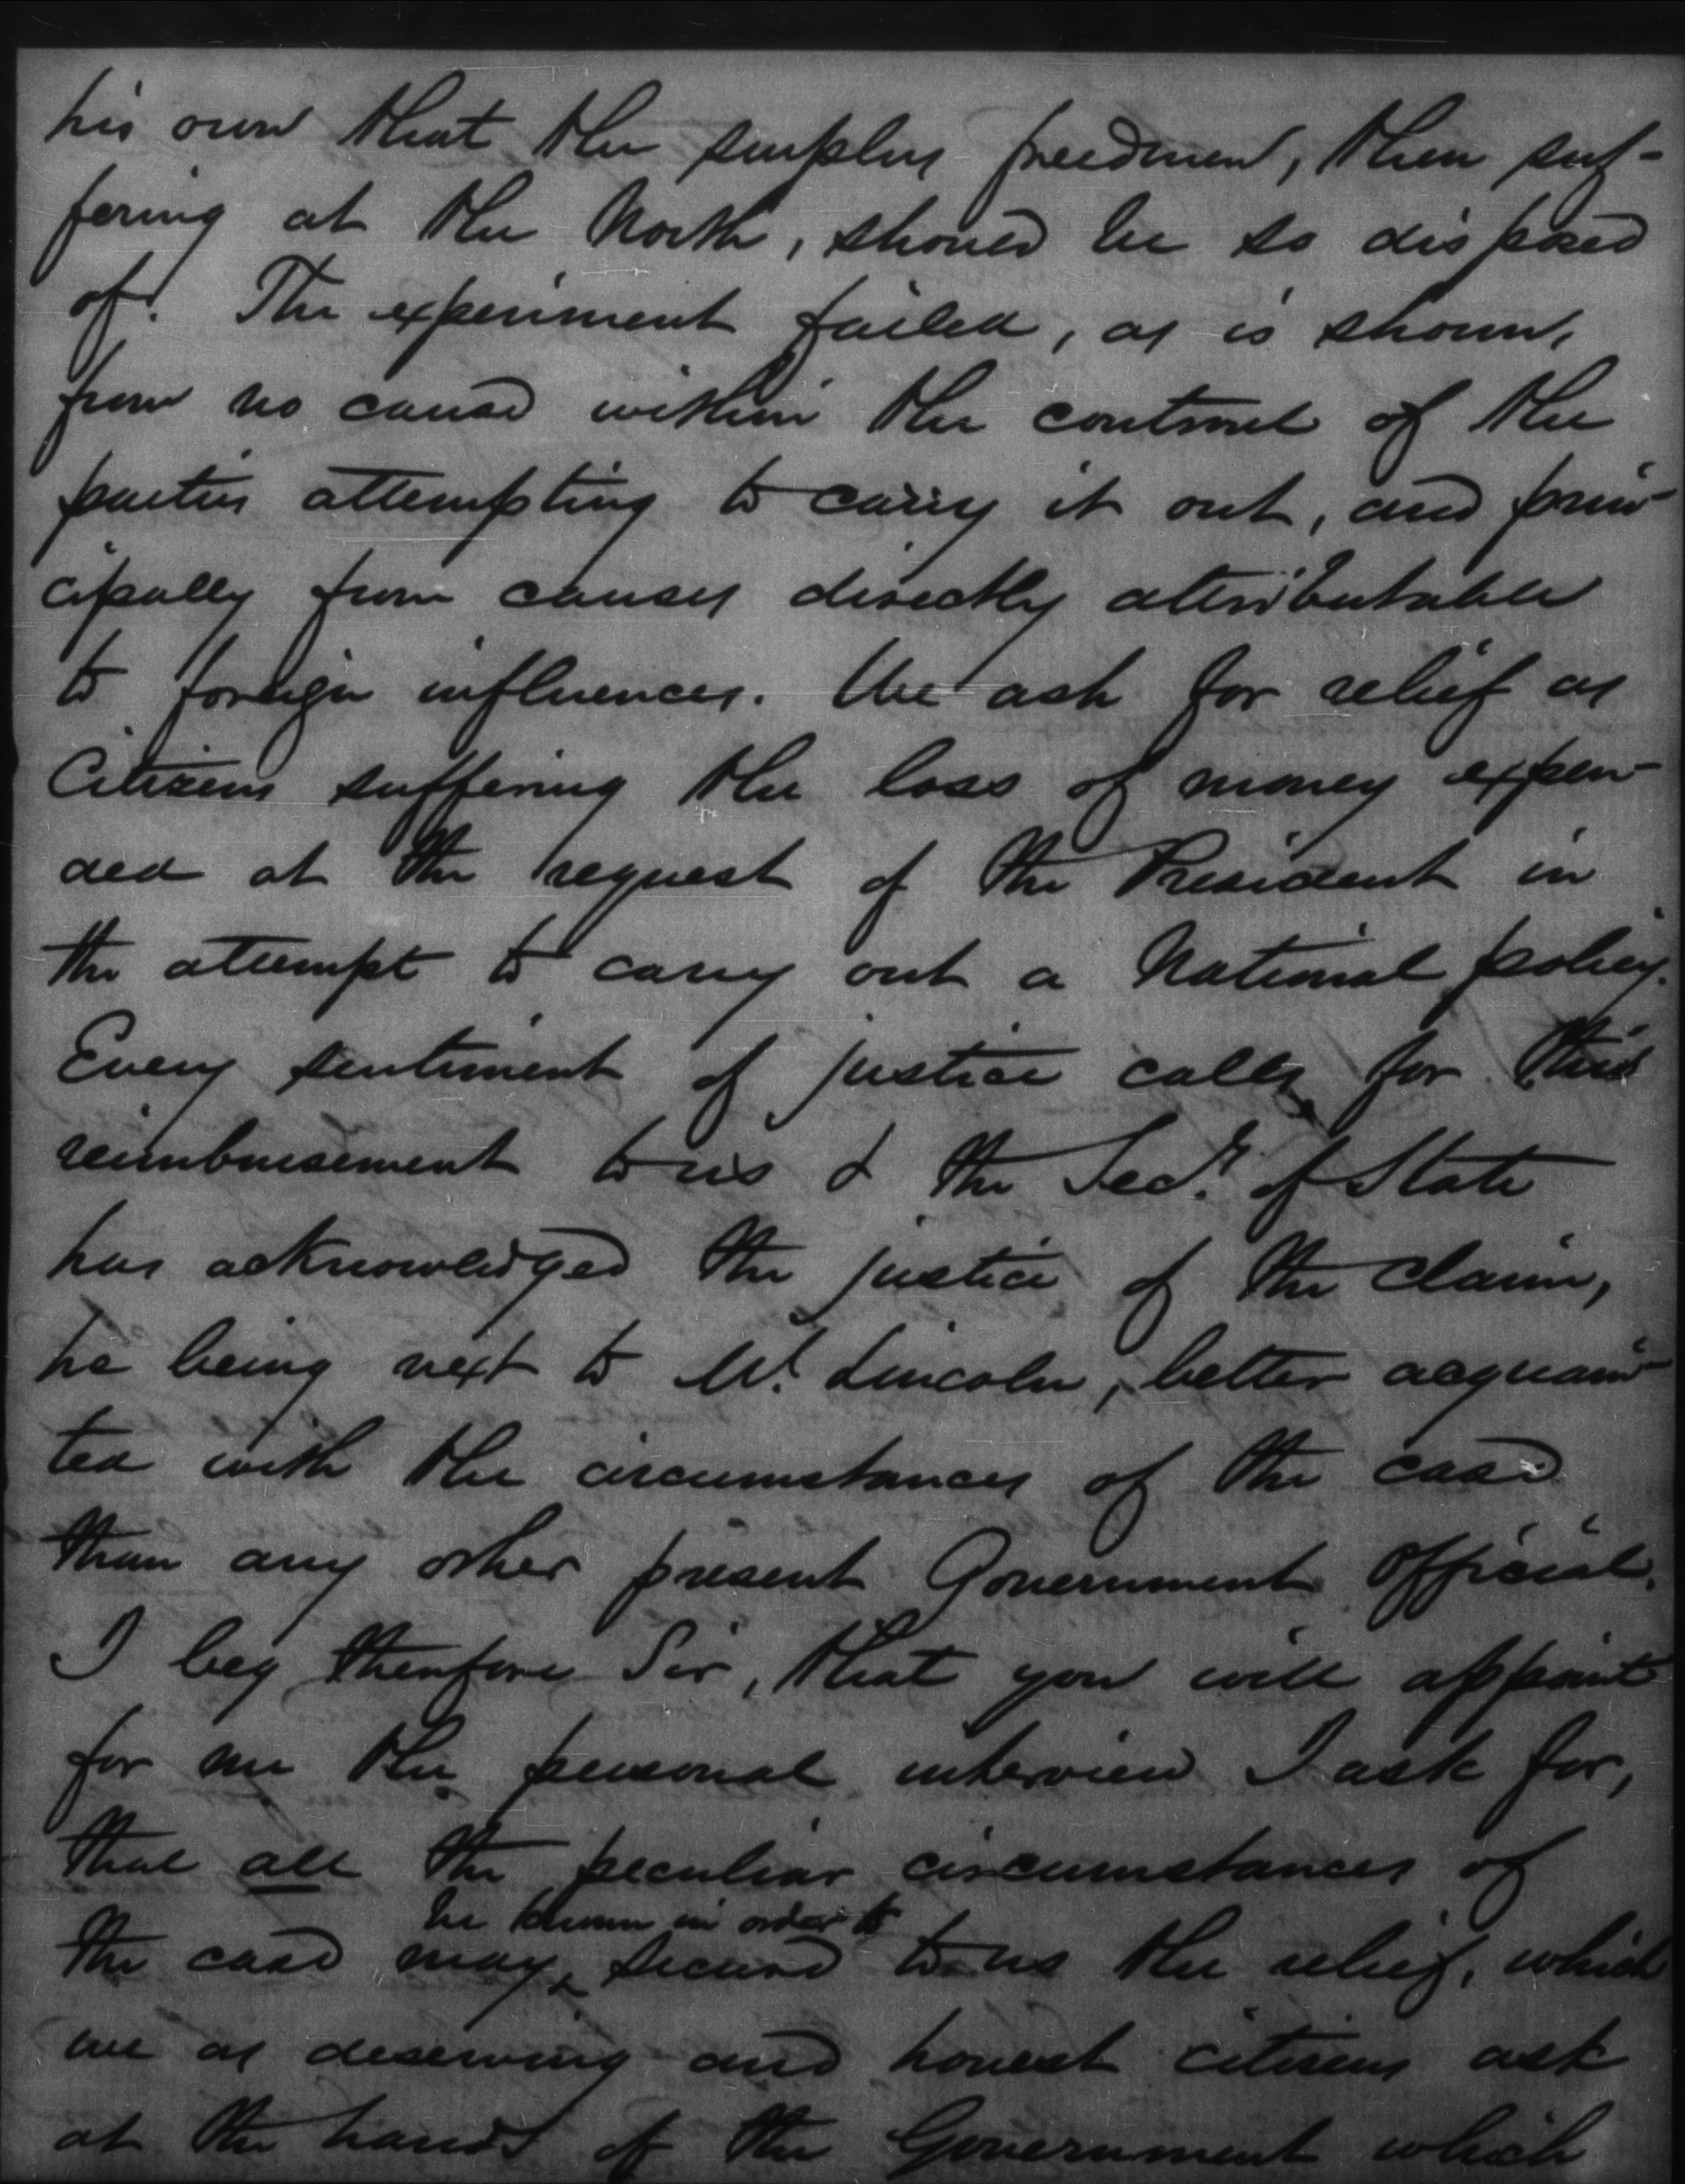 his own that the surplus freedmen, then suf-
fering at the North, should be so disposed
of. The experiment failed, as is shown,
from no cause within the control of the
parties attempting to carry it out, and prin-
cipally from causes directly attributable
to foreign influences. We ask for relief as
Citizens suffering the loss of money expen-
ded at the request of the President in
the attempt to carry out a National policy.
Every sentiment of justice calls for this
reimbursement to us & the Secy. of State
has acknowledged the justice of the claim,
he being next to Mr. Lincoln, better acquain-
ted with the circumstances of the case
than any other present Government official.
I beg therefore Sir, that you will appoint
for me the personal interview I ask for,
that all the peculiar circumstances of
be known in order to
the case may secure to us the relief, which
we as deserving and honest citizens ask
at the hands of the Government which